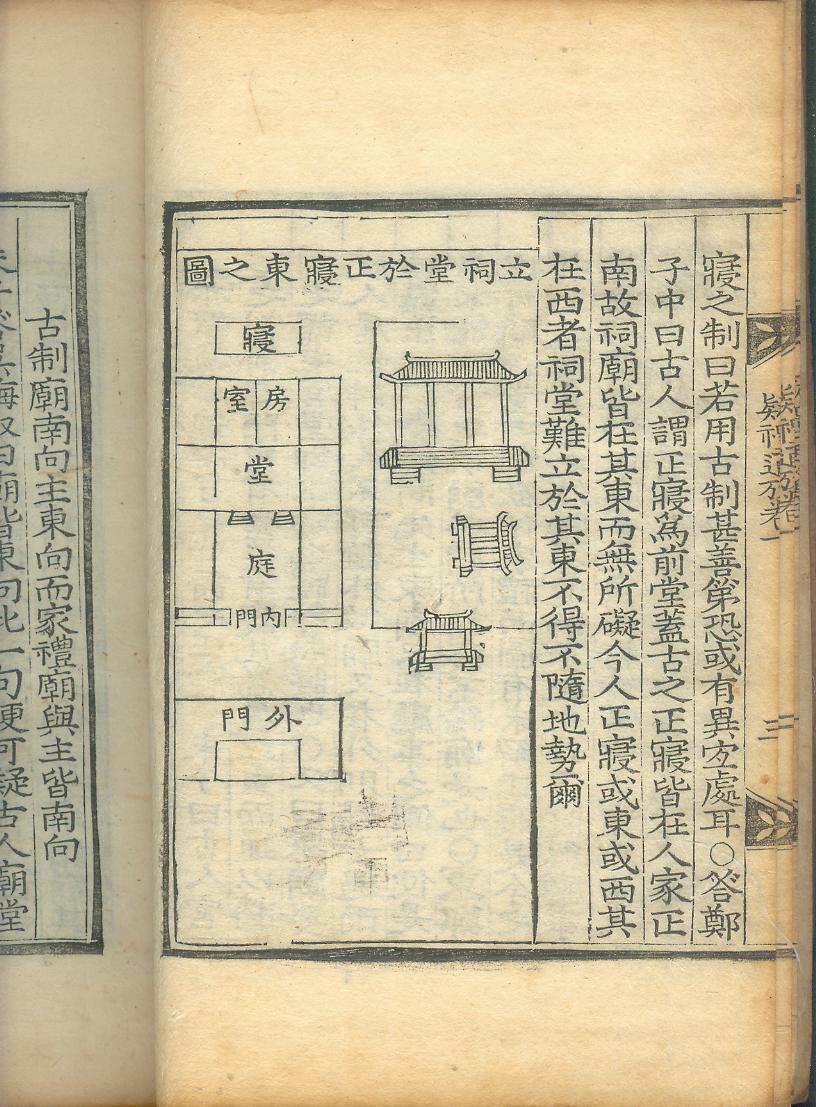 寢之制曰若用古制甚善第恐或有異宜處耳○答鄭
子中曰古人謂正寢爲前堂蓋古之正寢皆在人家正
南故祠廟皆在其東而無所礙今人正寢或東或西其
在西者祠堂難立於其東不得不隨地勢爾
立祠堂於正寢東之圖
寢
房室
堂
庭
內門
外門
古制廟南向主東向而家禮廟與主皆南向
曰廟皆東向此一句便可疑古人廟堂
三